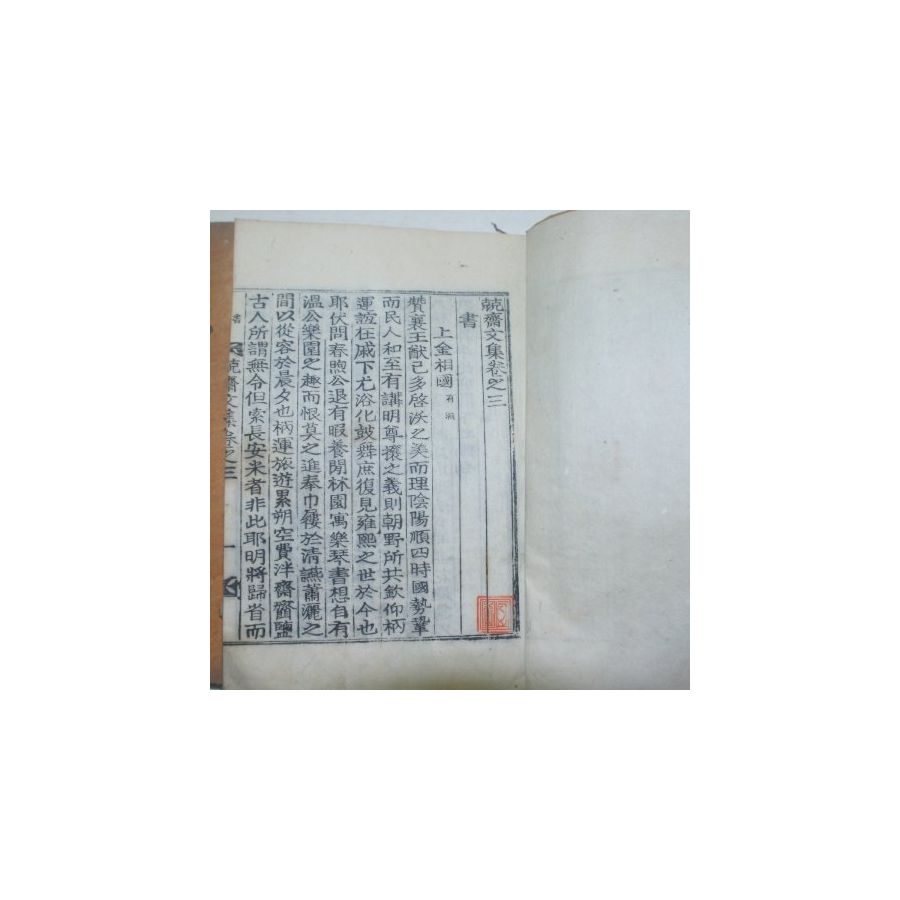 兢齋文集卷之三
書
上金相國
贊襄王猷已多啓沃之美而理陰陽順四時國勢鞏
而民人和至有講明尊攘之義則朝野所共欽仰柄
運誼在戚下尤浴化鼓舞庶復見雍熙之世於今也
耶伏問春煦公退有暇養閒林園寓樂琴書想自有
溫公樂園之趣而恨莫之進奉巾屨於清讌蕭灑之
間以從容於晨夕也柄運旅遊累朔空費泮齋齏鹽
古人所謂無令但索長安米者非此耶明將歸省而
書
兢齋文集卷之三
一